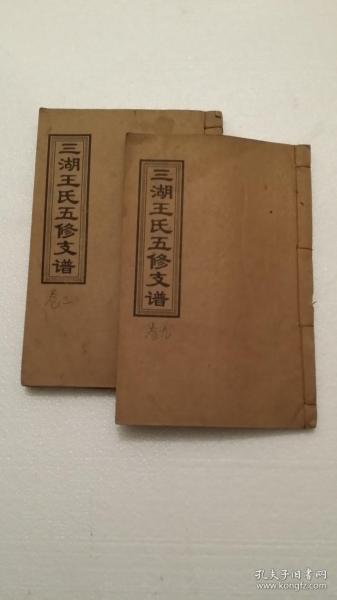 三湖王氏五修支谱
卷二
三湖王氏五修支谱
卷九
孔夫子旧书网
www.kongfz.com